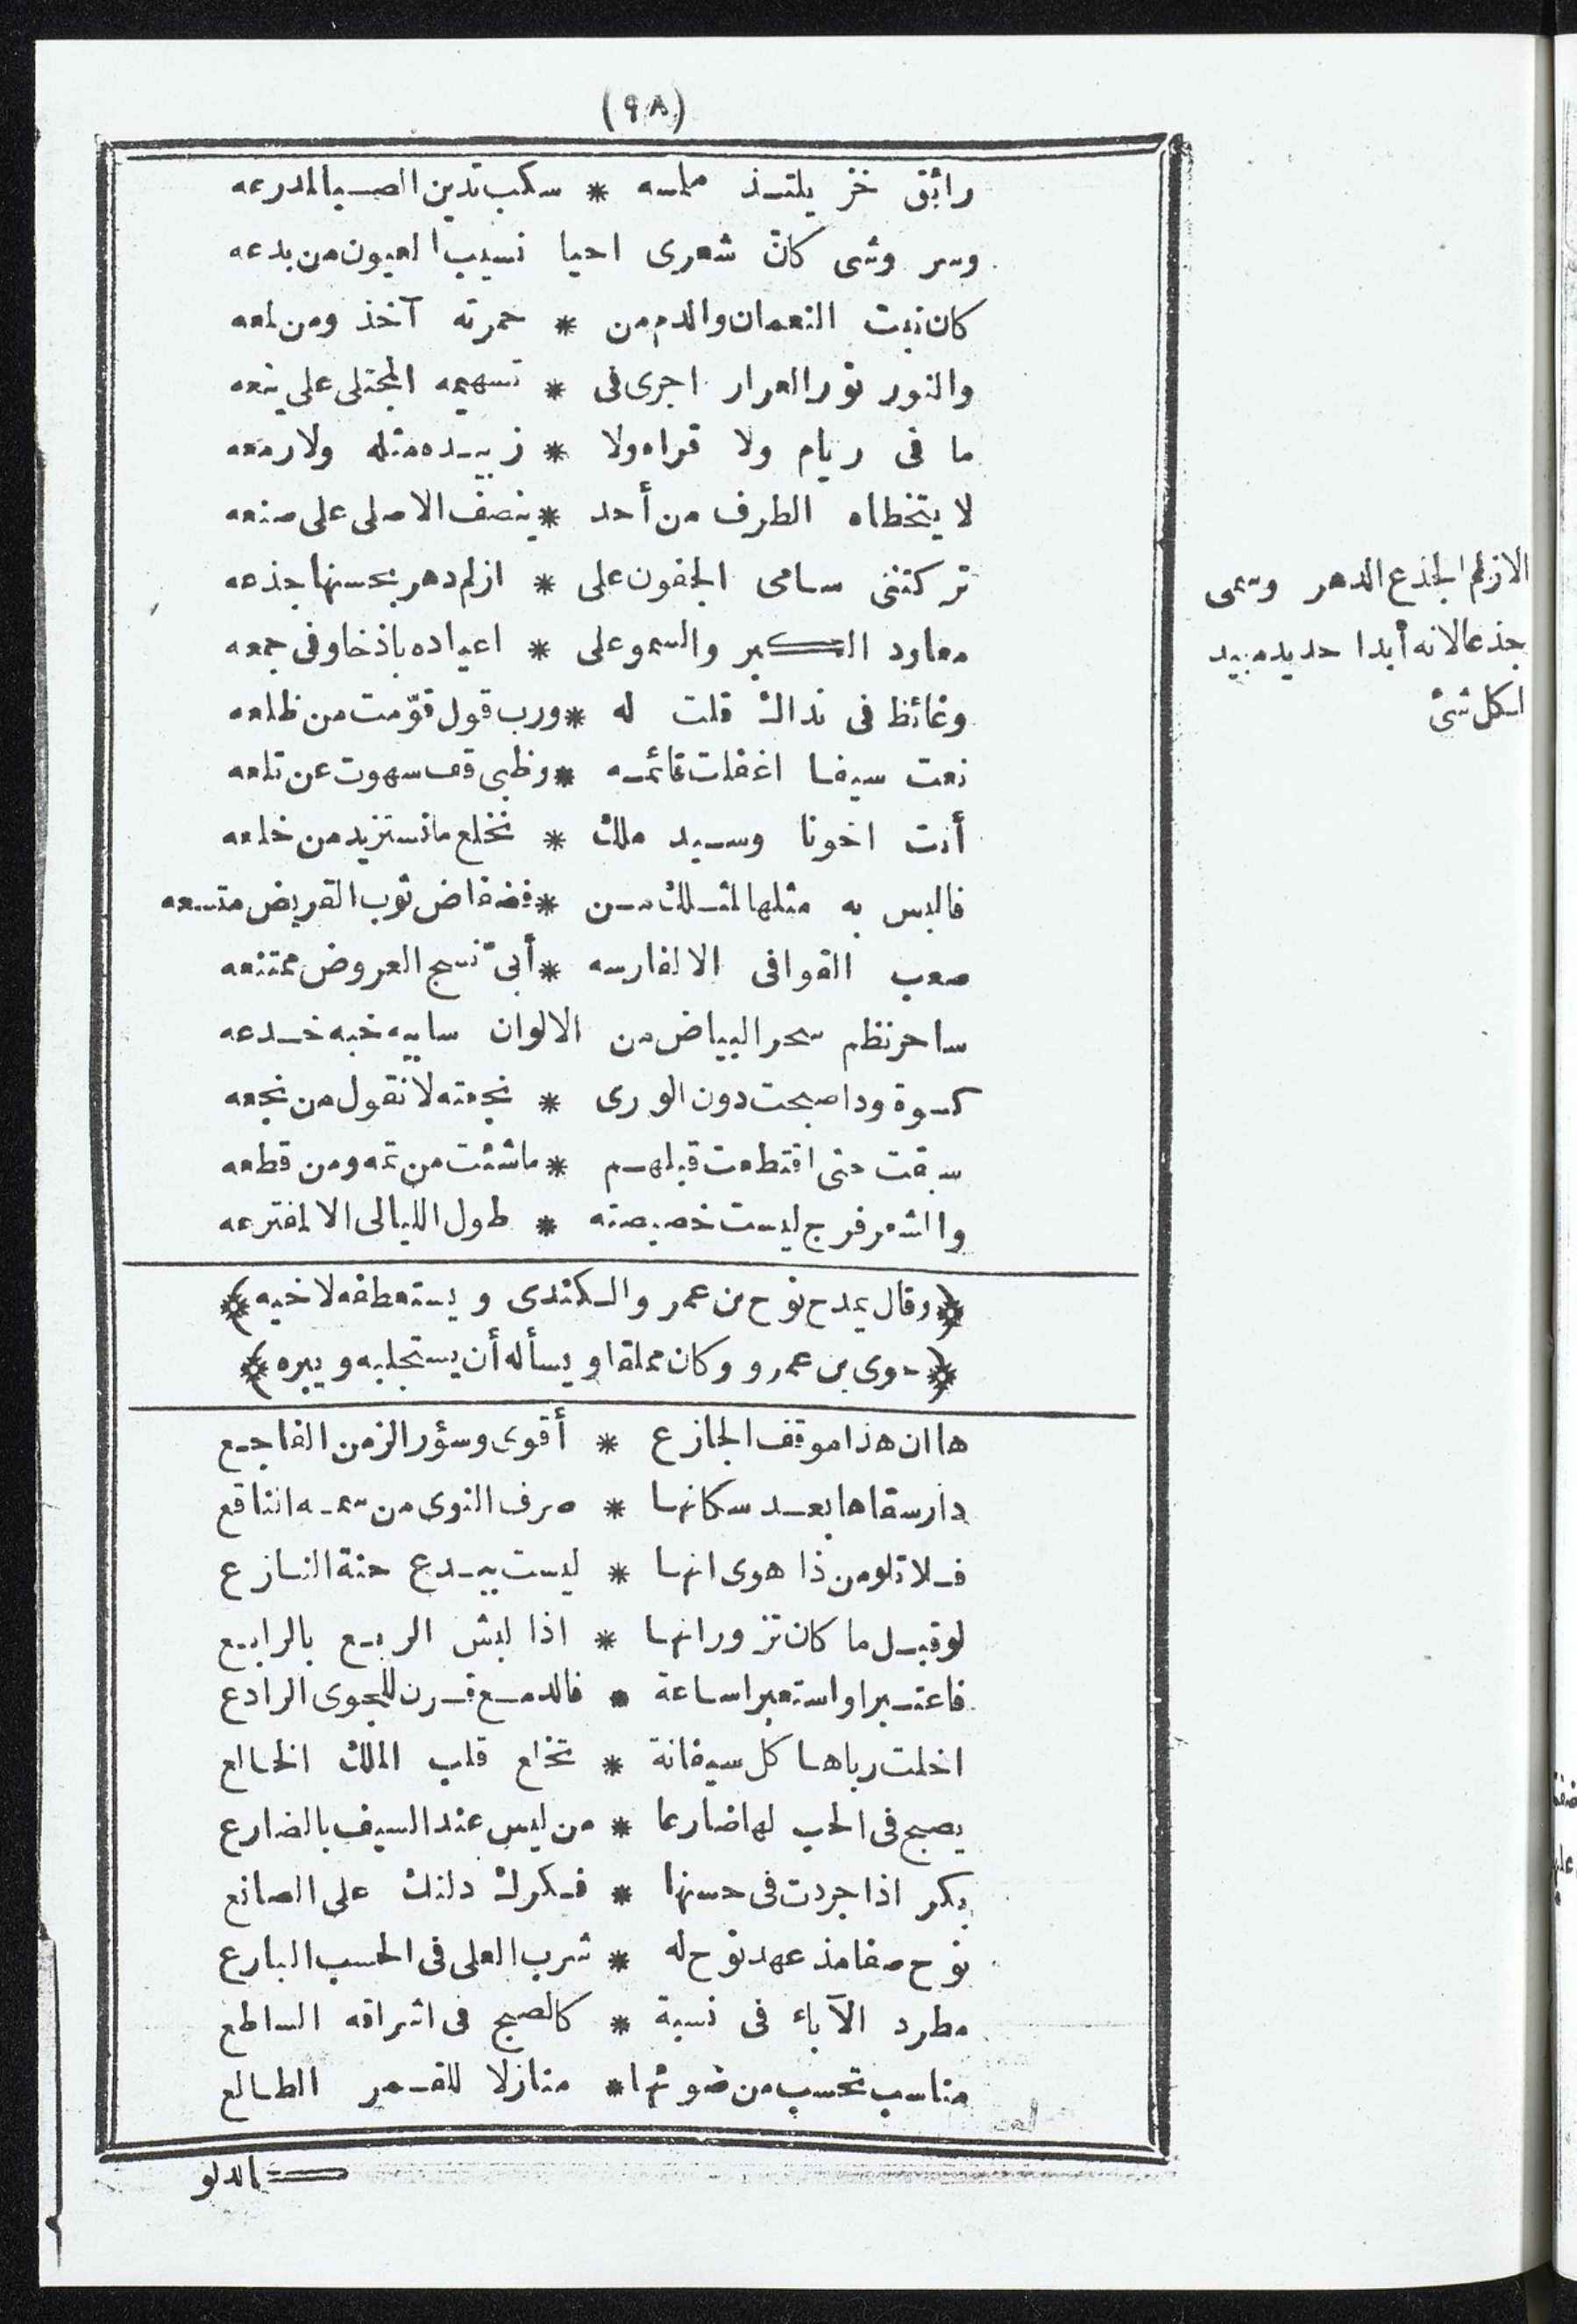 (٩٨)
رائق خز يلتذ ملمسه * سكب تدين الصبا لمدرعه
وسر وشى كان شعرى احيا نسيب العيون من بدعه
كان نبت النعمان والدم من * حمرته آخذ ومن لمعه
والنور نور العرار اجرى فى * تسهيمه المجتلى على ينعه
ما فى ريام ولا قراه ولا * زبيده مثله ولا رمعه
لا يتخطاه الطرف من أحد * ينصف الاصلى على صنعه
تركتنى سامى الجفون على * ازلم دهر بحسنها جذعه
معاود الكبر والسمو على * اعياده باذخا وفى جمعه
وغائظ فى نداك قلت له * ورب قول قوّمت من ظلعه
نعت سيفا اغفلت قائمه * وظبى قف سهوت عن تلعه
أنت اخونا وسيد ملك * نخلع ما نستزيد من خلعه
فالبس به مثلها لمثلك من * فضفاض ثوب القريض متسعه
صعب القوافى الا لفارسه * أبىّ نسج العروض ممتنعه
ساحر نظم سحر البياض من الالوان سابيه خبه خدعه
كسوة ود اصبحت دون الورى * نجعته لا نقول من نجعه
سبقت حتى اقتطعت قبلهم * ما شئت من تمه ومن قطعه
والشعر فرج ليست خصيصته * طول الليالى الا لمفترعه
﴿وقال يمدح نوح بن عمرو الكندى ويستعطفه لاخيه﴾
﴿حوى بن عمرو وكان مملقا ويسأله أن يستجلبه ويبره﴾
ها ان هذا موقف الجازع * أقوى وسؤر الزمن الفاجع
دار سقاها بعد سكانها * صرف النوى من سمه الناقع
فلا تلومن ذا هوى انها * ليست ببدع حنة النازع
لو قيل ما كان تزورانها * اذا لبش الربع بالرابع
فاعتبرا واستعبرا ساعة * فالدمع قرن للجوى الرادع
اخلت رباها كل سيفانة * تخلع قلب الملك الخالع
يصبح فى الحب لها ضارعا * من ليس عند السيف بالضارع
بكر اذا جردت فى حسنها * فكرك دلتك على الصانع
نوح صفا مذ عهد نوح له * شرب العلى فى الحسب البارع
مطرد الآباء فى نسبة * كالصبح فى اشراقه الساطع
مناسب تحسب من ضوئها * منازلا للقمر الطالع
كالدلو
الازلم الجذع الدهر وسمى
جذعا لانه أبدا جديد مبيد
لكل شئ